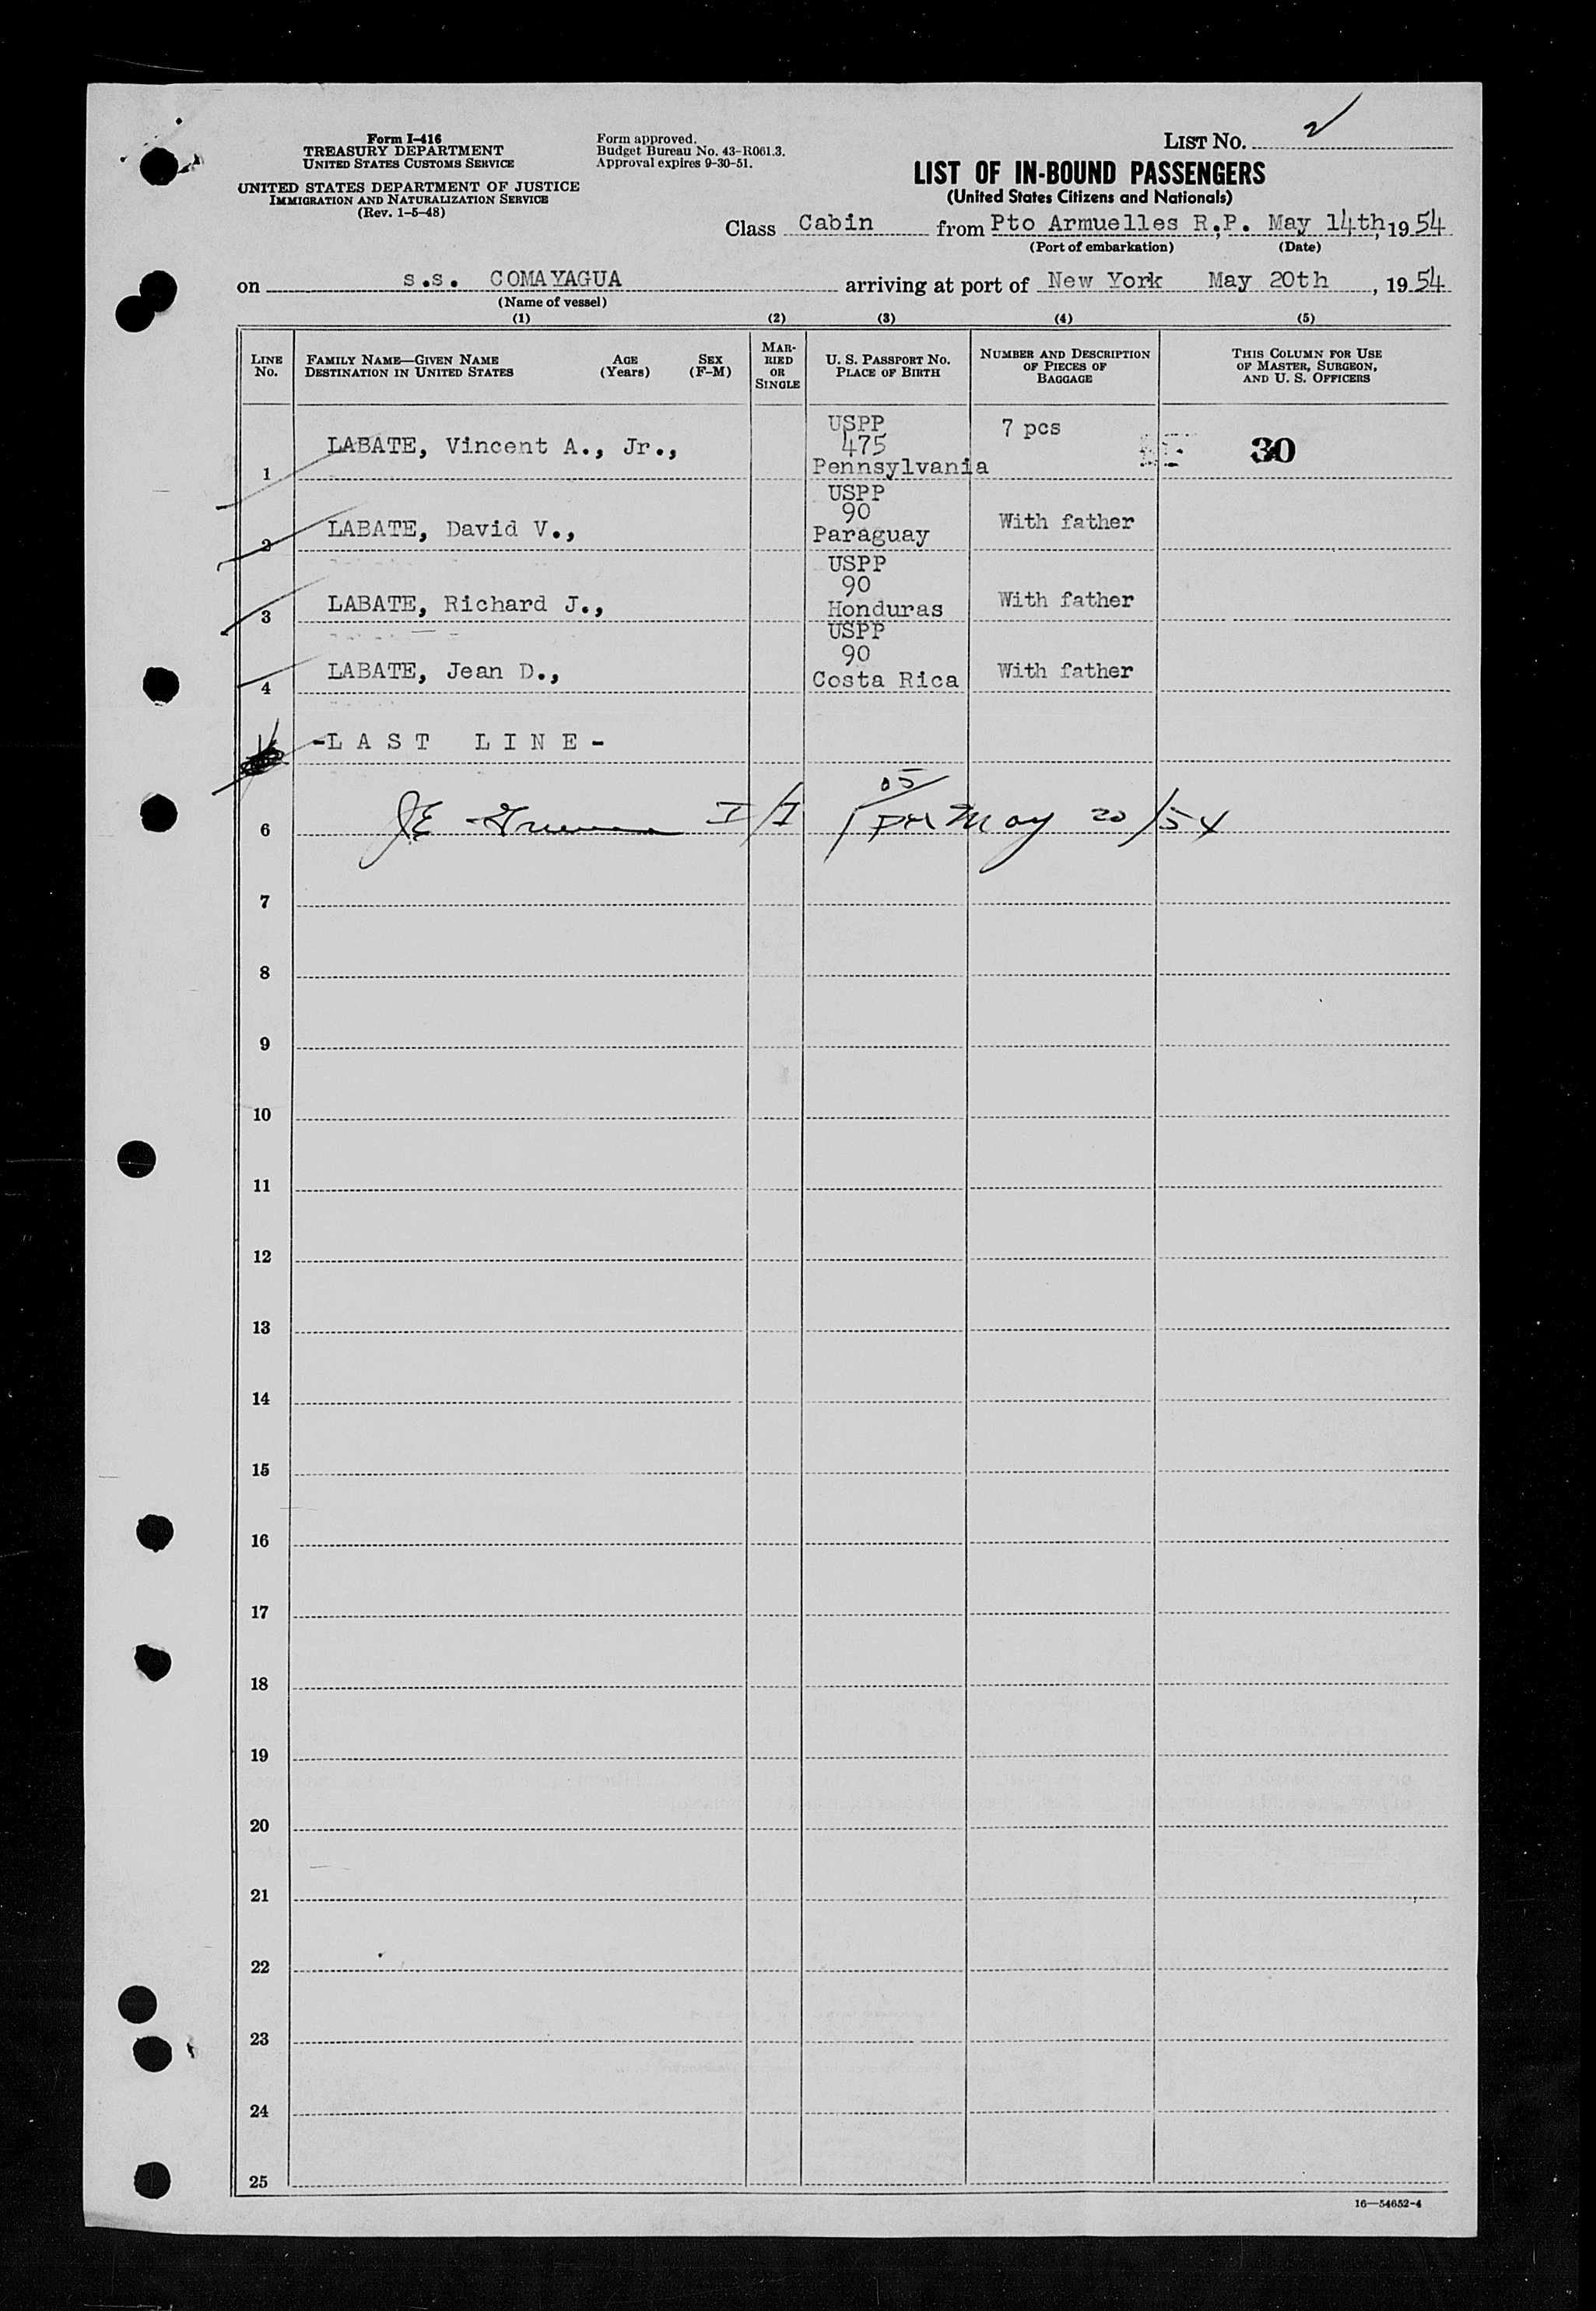 Form I-416
TREASURY DEPARTMENT
UNITED STATES CUSTOMS SERVICE
UNITED STATES DEPARTMENT OF JUSTICE
IMMIGRATION AND NATURALIZATION SERVICE
(Rev. 1-5-48)
Form approved.
Budget Bureau No. 43-R061.3.
Approval expires 9-30-51.
LIST No. 2
LIST OF IN-BOUND PASSENGERS
(United States Citizens and Nationals)
Class Cabin from Pto Armuelles R.P. May 14th, 1954
(Port of embarkation) (Date)
on s.s. COMAYAGUA arriving at port of New York May 20th, 1954
(Name of vessel)
(1) (2) (3) (4) (5)
LINE No.
FAMILY NAME—GIVEN NAME
DESTINATION IN UNITED STATES
AGE (Years)
SEX (F-M)
MARRIED OR SINGLE
U. S. PASSPORT NO.
PLACE OF BIRTH
NUMBER AND DESCRIPTION OF PIECES OF BAGGAGE
THIS COLUMN FOR USE OF MASTER, SURGEON, AND U. S. OFFICERS
1 LABATE, Vincent A., Jr., USPP 475 Pennsylvania 7 pcs 30
2 LABATE, David V., USPP 90 Paraguay With father
3 LABATE, Richard J., USPP 90 Honduras With father
4 LABATE, Jean D., USPP 90 Costa Rica With father
-LAST LINE-
6 JE I/I 05 May 20/54
7
8
9
10
11
12
13
14
15
16
17
18
19
20
21
22
23
24
25
16—54652-4